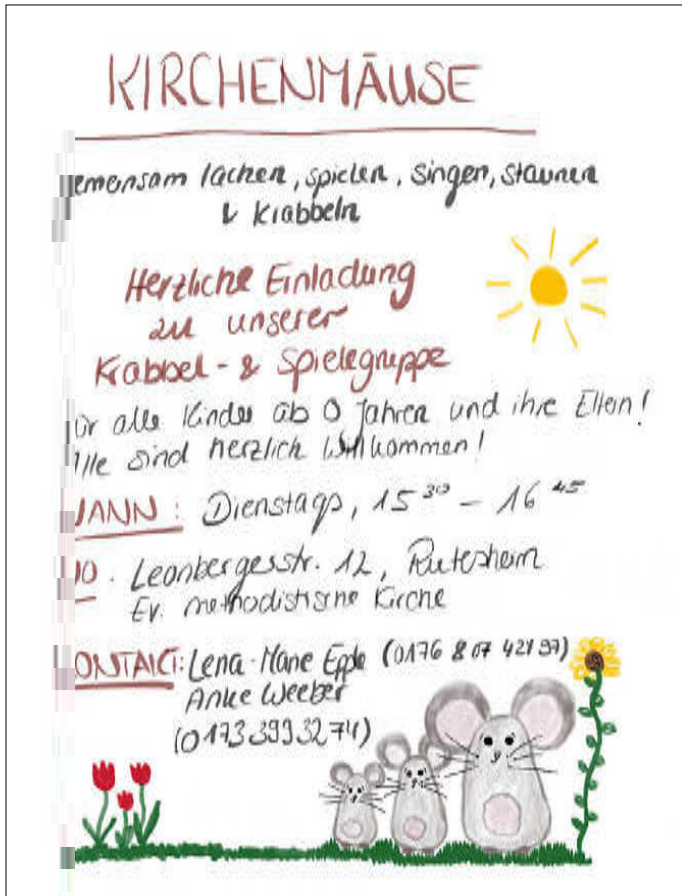 KIRCHENMÄUSE
lachen, spielen, singen, staunen
& Krabbeln
Herzliche Einladung
zu unserer
Krabbel- & Spielegruppe
für alle Kinder ab 0 Jahren und ihre Eltern!
Alle sind herzlich Willkommen!
WANN: Dienstags, 15³⁰ – 16⁴⁵
WO: Leonbergerstr. 12, Rutesheim
Ev. methodistische Kirche
KONTAKT: Lena-Marie Epple
Anke Weeber
(0173 3993274)